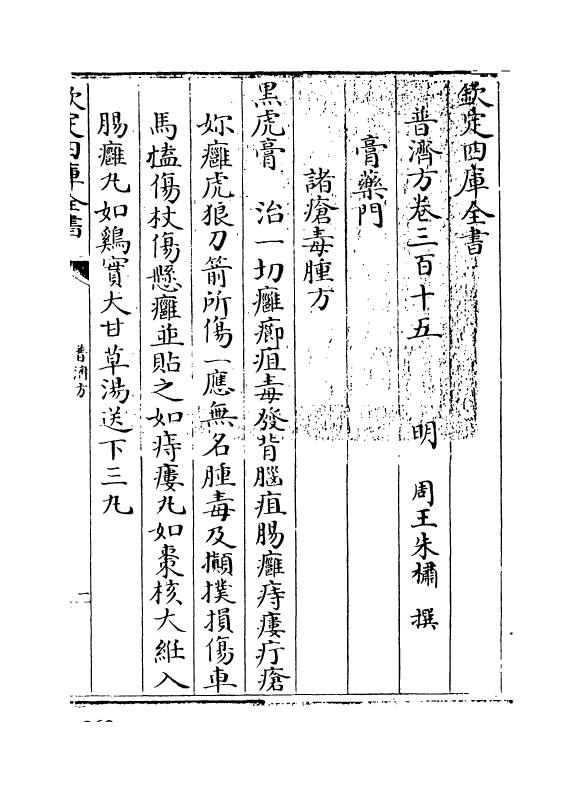 欽定四庫全書
普濟方卷三百十五
明 周王朱橚 撰
膏藥門
諸瘡毒腫方
黑虎膏 治一切癰癤疽毒發背腦疽腸癰痔瘻疔瘡
妳癰虎狼刀箭所傷一應無名腫毒及攧撲損傷車
馬榼傷杖傷懸癰並貼之如痔瘻丸如棗核大維入
腸癰丸如鷄實大甘草湯送下三丸
欽定四庫全書
普濟方
一